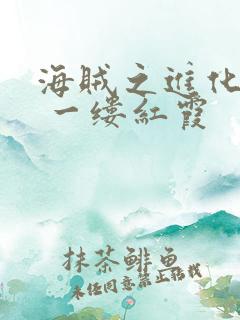 海賊之進化
一缕紅霞
抹茶鲱魚
未任同意禁止转载